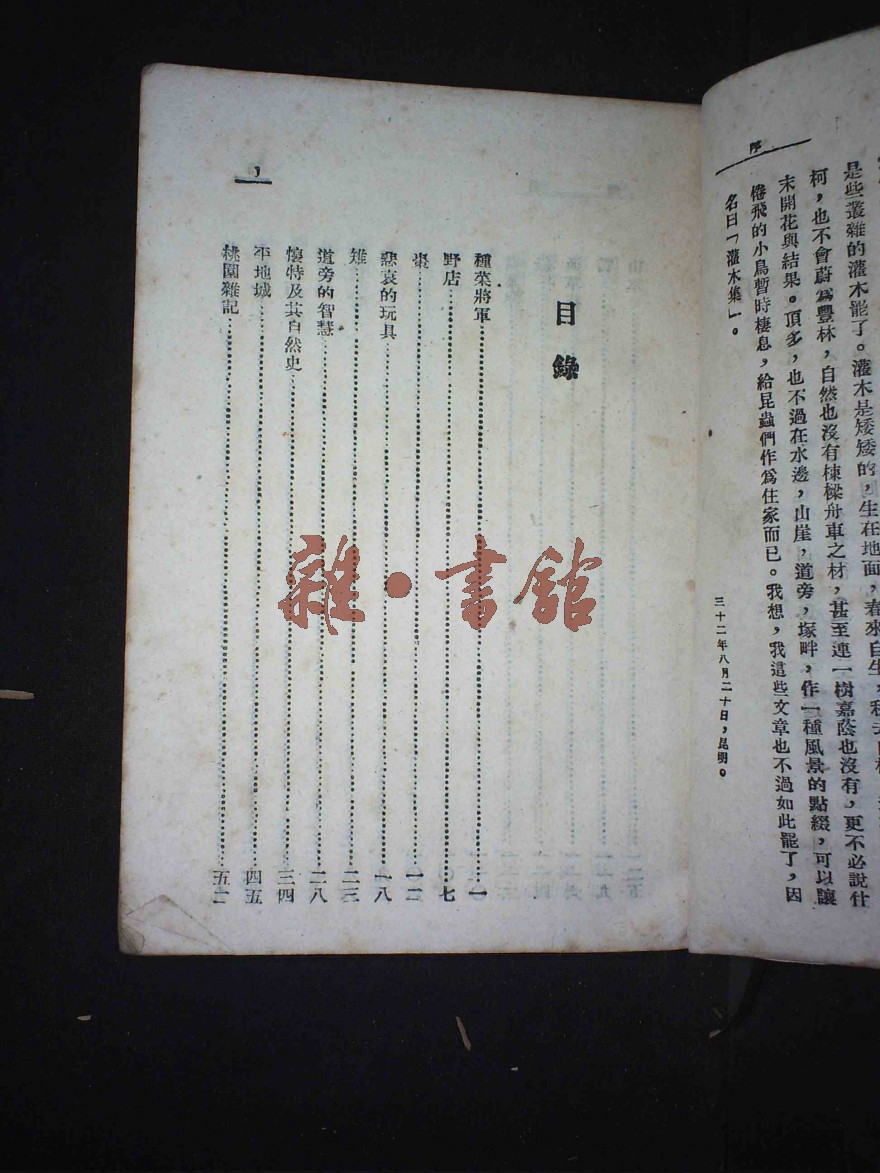 序
是些叢雜的灌木罷了。灌木是矮矮的，生在地面，春來自生，
柯，也不會蔚爲豐林，自然也沒有棟樑舟車之材，甚至連一樹嘉蔭也沒有，更不必說什
末開花與結果。頂多，也不過在水邊，山崖，道旁，塚畔，作一種風景的點綴，可以讓
倦飛的小鳥暫時棲息，給昆蟲們作爲住家而已。我想，我這些文章也不過如此罷了，因
名曰「灌木集」。
三十二年八月二十日，昆明。
目錄
種菜將軍……一
野店……七
棗……一二
悲哀的玩具……一八
雉……二三
道旁的智慧……二八
懷特及其自然史……三四
平地城……四五
桃園雜記……五二
雜·書館